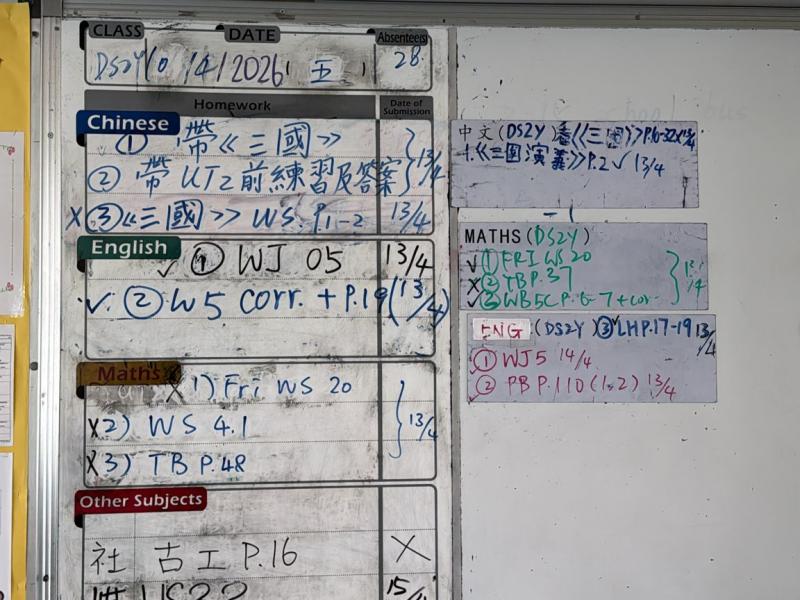 CLASS DATE Absentee(s)
DS2Y 10/4/2026 (五) 28
Homework Date of Submission
Chinese
① 帶《三國》
② 帶UT2前練習及答案 13/4
X ③《三國》WS. P.1-2 13/4
English
✓ ① WJ 05 13/4
✓ ② W5 corr. + P.19 (13/4)
Maths
X 1) Fri WS 20
X 2) WS 4.1 13/4
X 3) TB P.48
Other Subjects
社 古工 P.16 X
WS22 15/4
中文 (DS2Y) 《三國》P.6-32 13/4
《三國演義》P.2 ✓ 13/4
MATHS (DS2Y)
✓ ① FRI WS 20
X ② TB P.37 13/4
✓ ③ WB5C P.6-7 + cor.
ENG (DS2Y) ③ LH P.17-19 13/4
✓ ① WJ5 14/4
✓ ② PB P.110 (1,2) 13/4